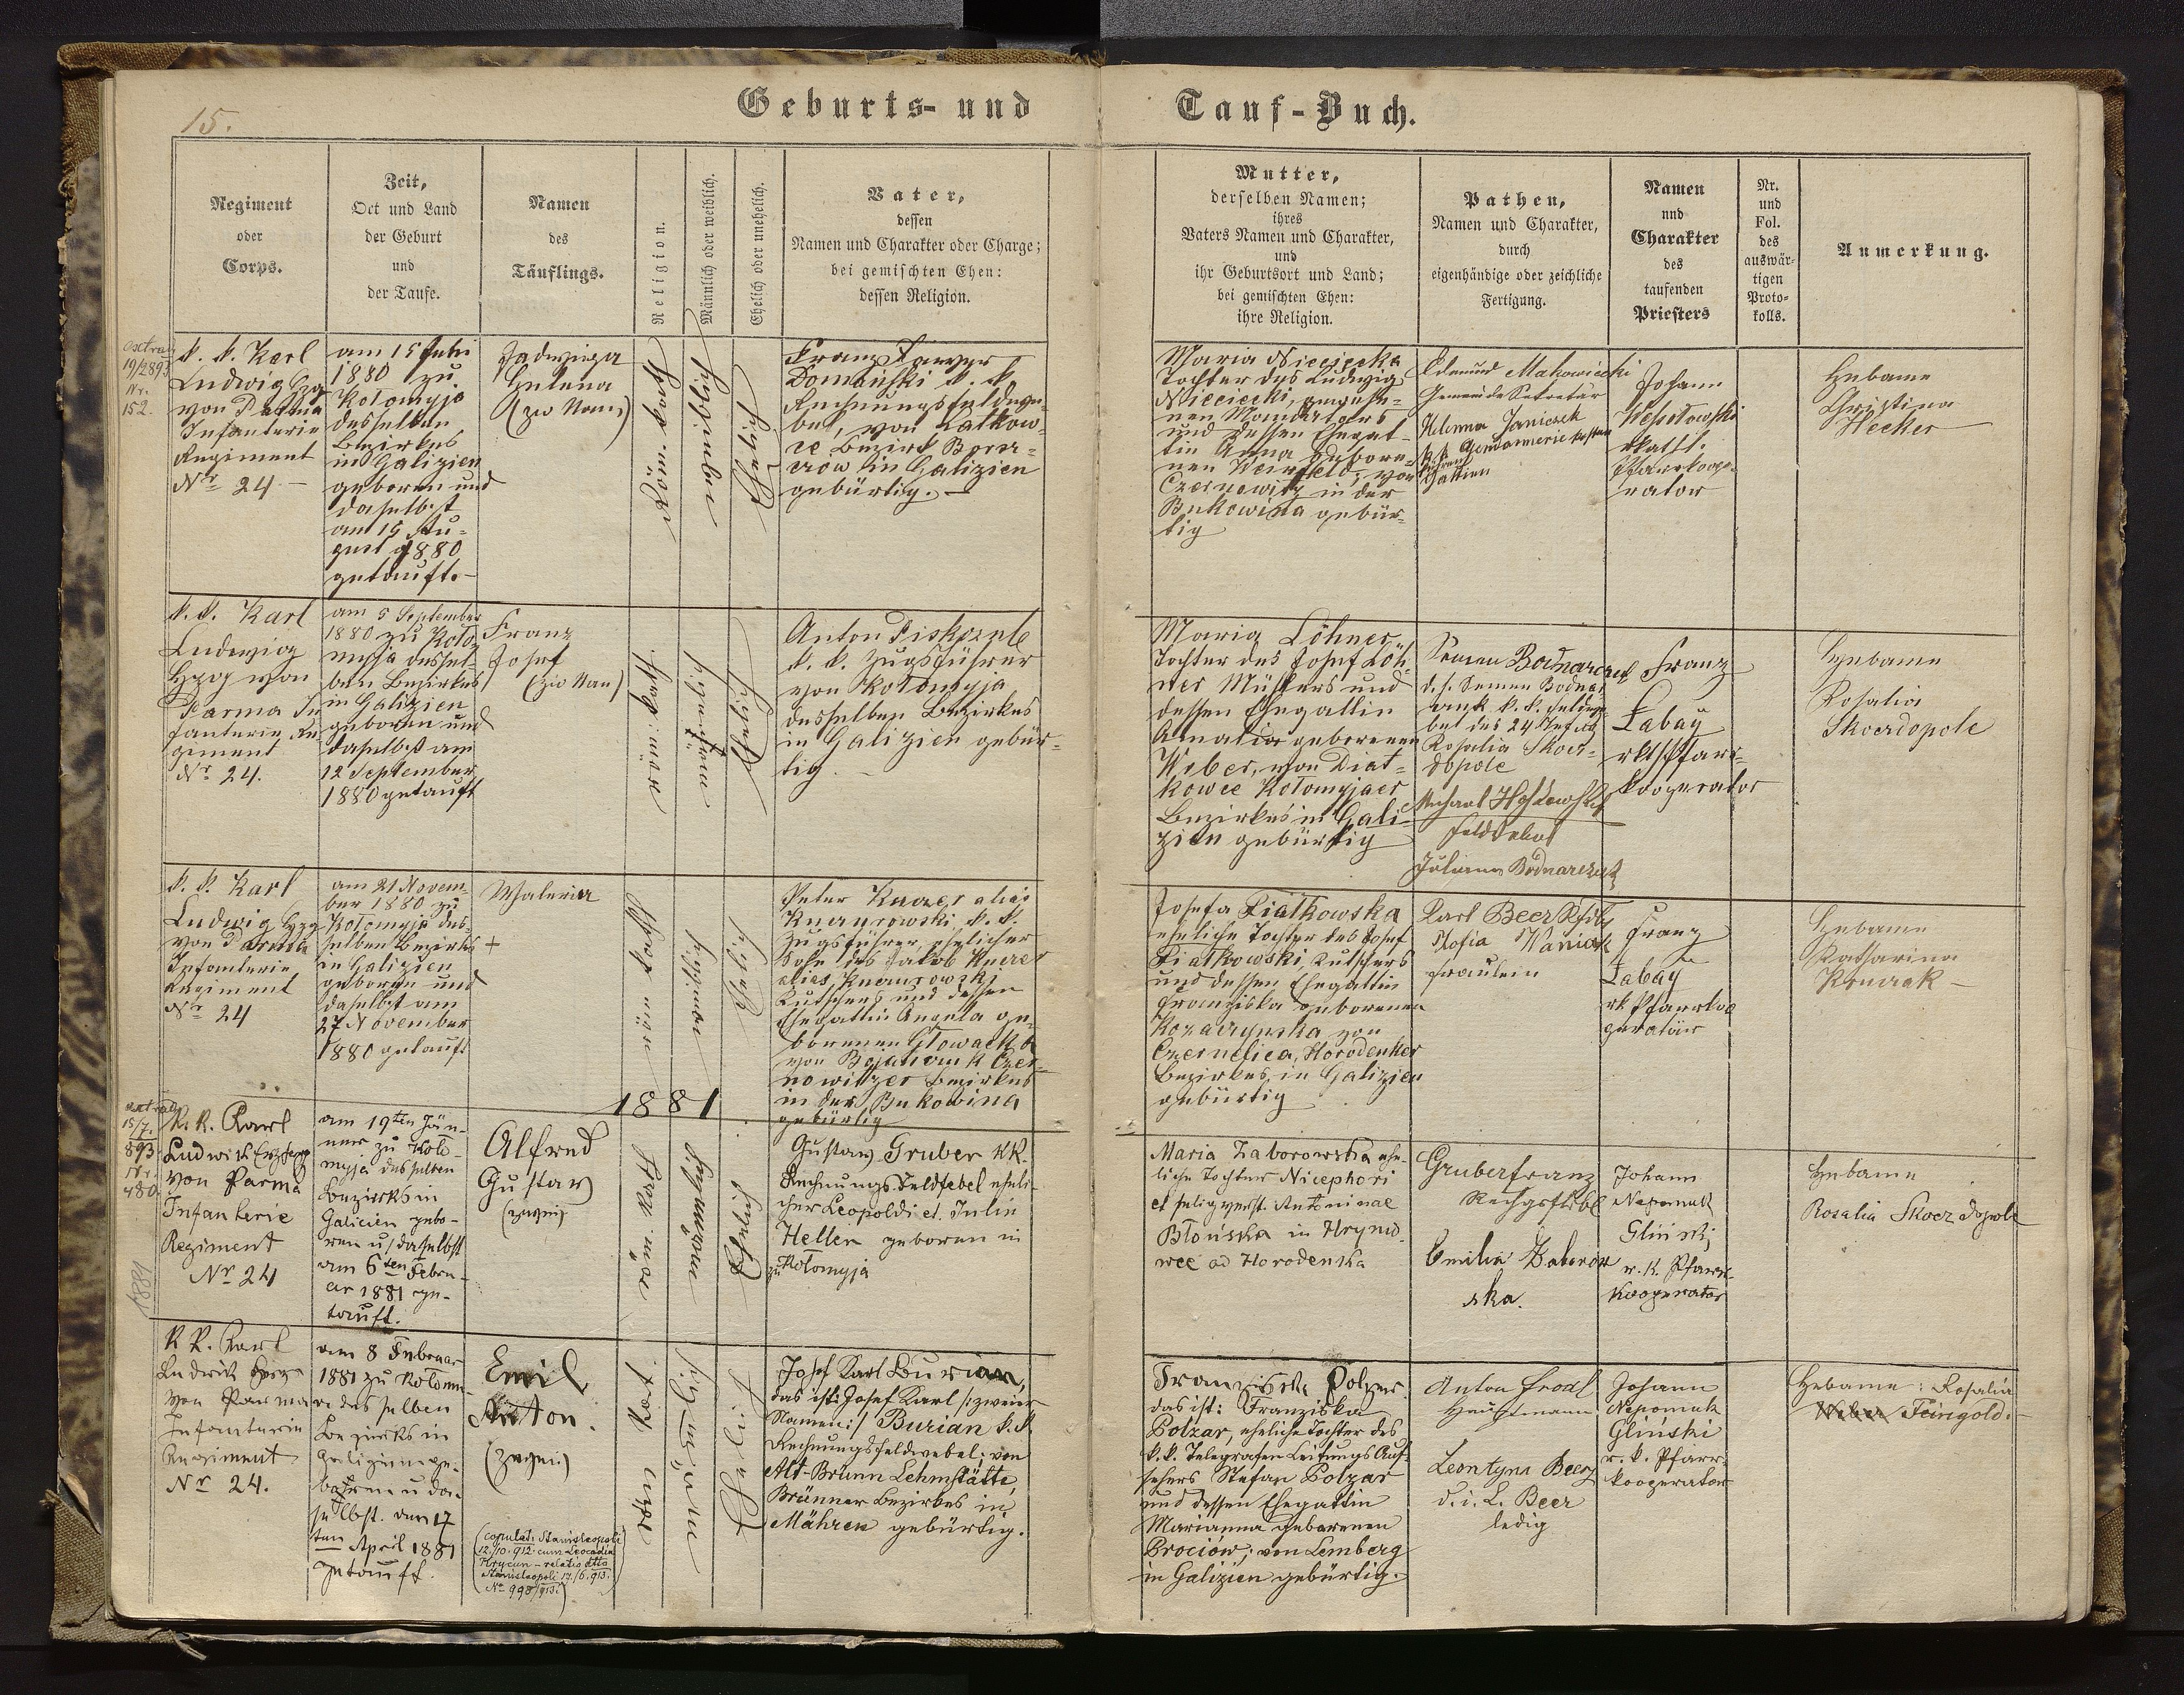 15.
Geburts- und Tauf-Buch.
Regiment
oder
Corps.
Zeit,
Oct und Land
der Geburt
und
der Taufe.
Namen
des
Täuflings.
Religion.
Männlich oder weiblich.
Ehelich oder unehelich.
Vater,
dessen
Namen und Charakter oder Charge;
bei gemischten Ehen:
dessen Religion.
Mutter,
derselben Namen;
ihres
Vaters Namen und Charakter,
und
ihr Geburtsort und Land;
bei gemischten Ehen:
ihre Religion.
Pathen,
Namen und Charakter,
durch
eigenhändige oder zeichliche
Fertigung.
Namen
und
Charakter
des
taufenden
Priesters
Nr.
und
Fol.
des
auswär-
tigen
Proto-
kolls.
Anmerkung.
Nr.
152.
k. k. Karl
Ludwig Hzg
von Parma
Infanterie
Regiment
Nr 24.
am 15 Juli
1880 zu
Kolomyja
desselben
Bezirkes
in Galizien
geboren und
daselbst
am 15 Au-
gust 1880
getauft.
Helena
Franz
Domański k. k.
Rechnungsfeldwe-
bel, von Latkow-
ce Bezirk
in Galizien
gebürtig.
Maria
Tochter des Ludwig
und dessen Ehegat-
tin Anna gebore-
nen Weinfeld, von
Czernowitz in der
Bukowina gebür-
tig
Edmund Makowiecki
Gemeinde Sekretär
Helena Janiczek
Gattin
Johann
Wesołowski
rkath.
Pfarrkoope-
rator
Hebame
Christina
Hecker
k. k. Karl
Ludwig
Hzog von
Parma In
fanterie Re
giment
Nr 24.
am 5 September
1880 zu Kolo-
myja dessel-
ben Bezirkes
in Galizien
geboren und
daselbst am
12 September
1880 getauft
Franz
Josef
männlich
ehelich
Anton
k. k. Zugsführer
von Kolomyja
desselben Bezirkes
in Galizien gebür-
tig
Maria Löhner
Tochter des Josef Löh-
ner Müllers und
dessen Ehegattin
Amalia geborenen
Weber, von Diat-
kowce Kolomyjaer
Bezirkes in Gali-
zien gebürtig
Semen Bodnarczuk
d. i. Semen Bodnar-
czuk k. k. Feldwe-
bel des 24
Rosalia Skocz-
dopole
Feldwebel
Juliana Bodnarczuk
Franz
Łabay
rkt Pfarr-
kooperator
Hebame
Rosalia
Skoczdopole
k. k. Karl
Ludwig Hzg
von Parma
Infanterie
Regiment
Nr 24
am 21 Novem-
ber 1880 zu
Kolomyja des-
selben Bezirks
in Galizien
geboren und
daselbst am
27 November
1880 getauft
Waleria
+
ehelich
Peter Knazer alias
k. k.
Zugsführer, ehelicher
Sohn des Jakob
alias
Kutschers und dessen
Ehegattin Angela ge-
borenen Głowacka
von Bojanczuk Czer-
nowitzer Bezirkes
in der Bukowina
gebürtig
Josefa Piatkowska
eheliche Tochter des Josef
Piatkowski, Kutschers
und dessen Ehegattin
Franziska geborenen
Kozaczynska von
Czernelica, Horodenker
Bezirkes in Galizien
gebürtig
Karl Beer
Zofia Waniak
Fräulein
Franz
Łabay
rk Pfarrkoo
perator
Hebame
Katharina
1881
15/7.
893
Nr.
480.
1881
K. k. Karl
Ludwik
von Parma
Infanterie
Regiment
Nr 24
am 19ten Jän-
ner zu Kolo-
myja desselben
Bezirks in
Galicien gebo-
ren u/ daselbst
am 6ten Febru-
ar 1881 ge-
tauft.
Alfred
Gustaw
(zwei)
männlich
ehelich
Gustaw Gruber kk.
Rechnungs Feldwebel eheli-
cher Leopoldi et. Julin
Heller geboren in
zu Kolomyja
Maria Zaborowska ehe-
liche Tochter Nicephori
et selig verst. Antoninae
Błońska in Hrynio-
wce ad Horodenka
Gruber Franz
Emilia Zaborow
ska.
Johann
Nepomuk
Gliński
r. k. Pfarr-
kooperator
Hebame
Rosalia Skoczdopole
K. k. Karl
Ludwik
von Parma
Infanterie
Regiment
Nr 24.
am 8 Februar
1881 zu Kolomy-
a desselben
Bezirks in
Galizien ge-
boren u da-
selbst. den 17
ten April 1881
getauft.
Emil
Anton.
(zwei)
(copulat. Stanisleopoli
12./10. 912 cum Leocadia
Hrycun - relatio dtto
Stanisleopoli 17./6. 913.
No 998/913.)
männlich
ehelich
Josef Karl Burian,
das ist: Josef Karl /: zweier
Namen :/ Burian k. k.
Rechnungsfeldwebel; von
Alt-Brünn Lehmstätte,
Brünner Bezirkes in
Mähren gebürtig.
Franziska Polzar
das ist: Franziska
Polzar, eheliche Tochter des
k. k. Telegrafen Leitungs Auf-
sehers Stefan Polzar
und dessen Ehegattin
Marianna geborenen
Prociów; von Lemberg
in Galizien gebürtig.
Anton Prodl
Hauptmann
Leontyna Beer
d. i. L. Beer
ledig
Johann
Nepomuk
Gliński
r. k. Pfarr-
kooperator
Hebame: Rosalia
Feingold.